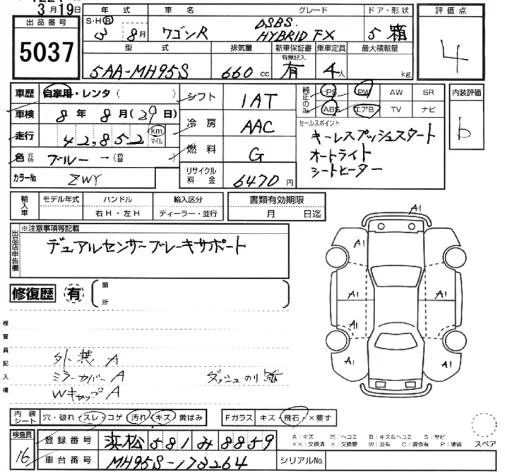 3月19日
出品番号 5037
年式 S・H・R 3年 8月
車名 ワゴンR
グレード DSBS. HYBRID FX
ドア・形状 5 箱
評価点 4
型式 5AA-MH95S
排気量 660 cc
新車保証書 有無記入 有
乗車定員 4人
最大積載量 kg
車歴 自家用・レンタ( )
車検 8年 8月(29日)
走行 42,852 km マイル
色 元色 ブルー → (色替
カラーNo ZWY
シフト 1AT
冷房 AAC
燃料 G
リサイクル料金 6470円
純正のみ PS PW AW SR
ABS エアB TV ナビ
内装評価 b
セールスポイント
キーレスプッシュスタート
オートライト
シートヒーター
輸入車 モデル年式 ハンドル 右H・左H 輸入区分 ディーラー・並行
書類有効期限 月 日迄
出品店申告欄 ※注意事項等記載
デュアルセンサーブレーキサポート
修復歴 有 箇所
検査員記入欄
外装 A
ミラーカバー A
Wキャップ A
ダッシュのり跡
A1 A1
A1 A1
A1 A1
内装シート 穴・破れ スレ コゲ 汚れ キズ 黄ばみ
Fガラス キズ 飛石 ×要す
スペア
検査員 16
登録番号 浜松 581 み 8859
車台番号 MH95S-178264
シリアルNo.